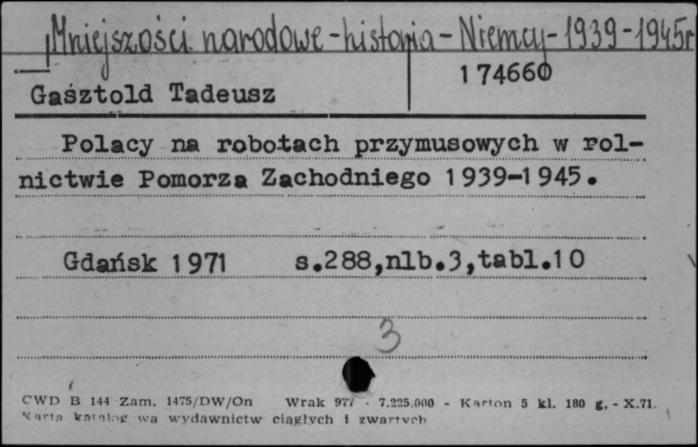 Mniejszości narodowe - historia - Niemcy - 1939 - 1945 r
174660
Gasztold Tadeusz
Polacy na robotach przymusowych w rol-
nictwie Pomorza Zachodniego 1939-1945.
Gdańsk 1971 s.288,nlb.3,tabl.10
3
CWD B 144 Zam. 1475/DW/On Wrak 977 - 7.225.000 - Karton 5 kl. 180 g. - X.71.
Karta katalog wa wydawnictw ciągłych i zwartych